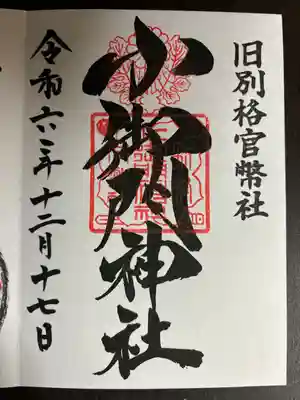 旧別格官幣社
小御門神社
令和六年十二月十七日